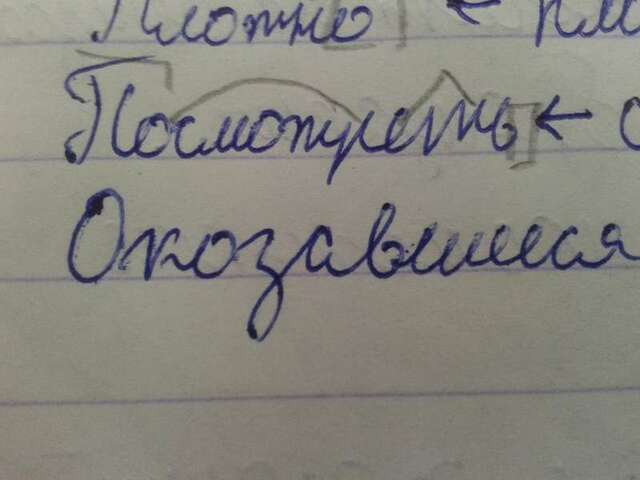 Плотно ←
Посмотреть ←
Окозавшиеся